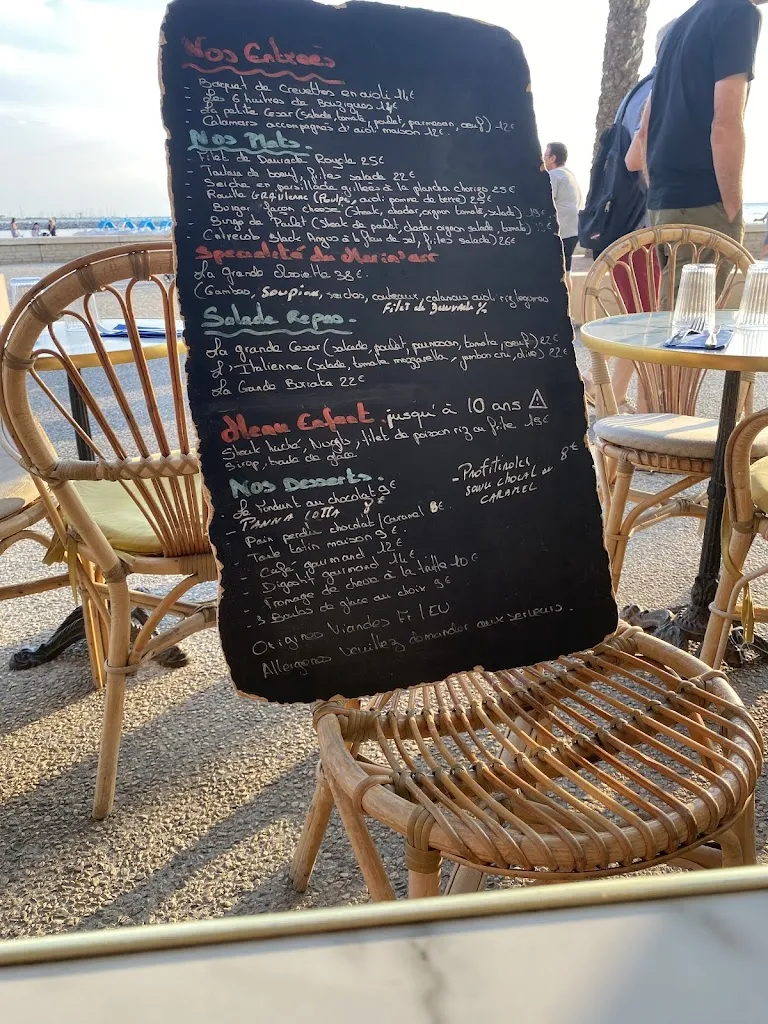 Nos Entrées
- Baquet de Crevettes en aioli 14€
- Les 6 huitres de Bouzigues 12€
- La petite Cesar (salade, tomate, poulet, parmesan, oeuf) 12€
- Calamars accompagnés d'aioli maison 12€
Nos Plats.
- Filet de Daurade Royale 25€
- de boeuf, frites salade 22€
- Seiche en persillade grillées à la plancha chorizo 25€
- Rouille GRAULENC (Poulpe, aioli pomme de terre) 25€
- Burger façon cheese (Steak, chedar, oignon tomate, salade)
- Burger de Poulet (Steak de poulet, chedar oignon salade, tomate)
- Entrecote Black Angus à la fleur de sel, frites salade) 26€
Specialité du
La Grande Assiette 38€.
(Gambas, Soupions, seiches, couteaux, calamars aioli riz legumes
Filet de daurade
Salade Repas.
La grande Cesar (salade, poulet, parmesan, tomate, oeuf) 22€
L'Italienne (Salade, tomate mozzarella, jambon cru, olive) 22€
La Grande Burrata 22€
Menu Enfant jusqu'à 10 ans
Steak haché, Nuggets, filet de poisson riz ou frite 15€
Sirop, boule de glace
Nos Desserts.
Le Fondant au chocolat 9€
- PANNA COTTA 8€
- Profitinoles 8€
SAUCE CHOCOLAT OU
CARAMEL
Pain perdu chocolat/Caramel 8€
- Tarte tatin maison 9€.
- Café gourmand 12€
- Digestif gourmand 14€
- Fromage de chèvre à la truffe 10€
- 3 Boules de glace au choix 9€
Origines Viandes Fr / EU
Allergènes veuillez demander aux serveurs.